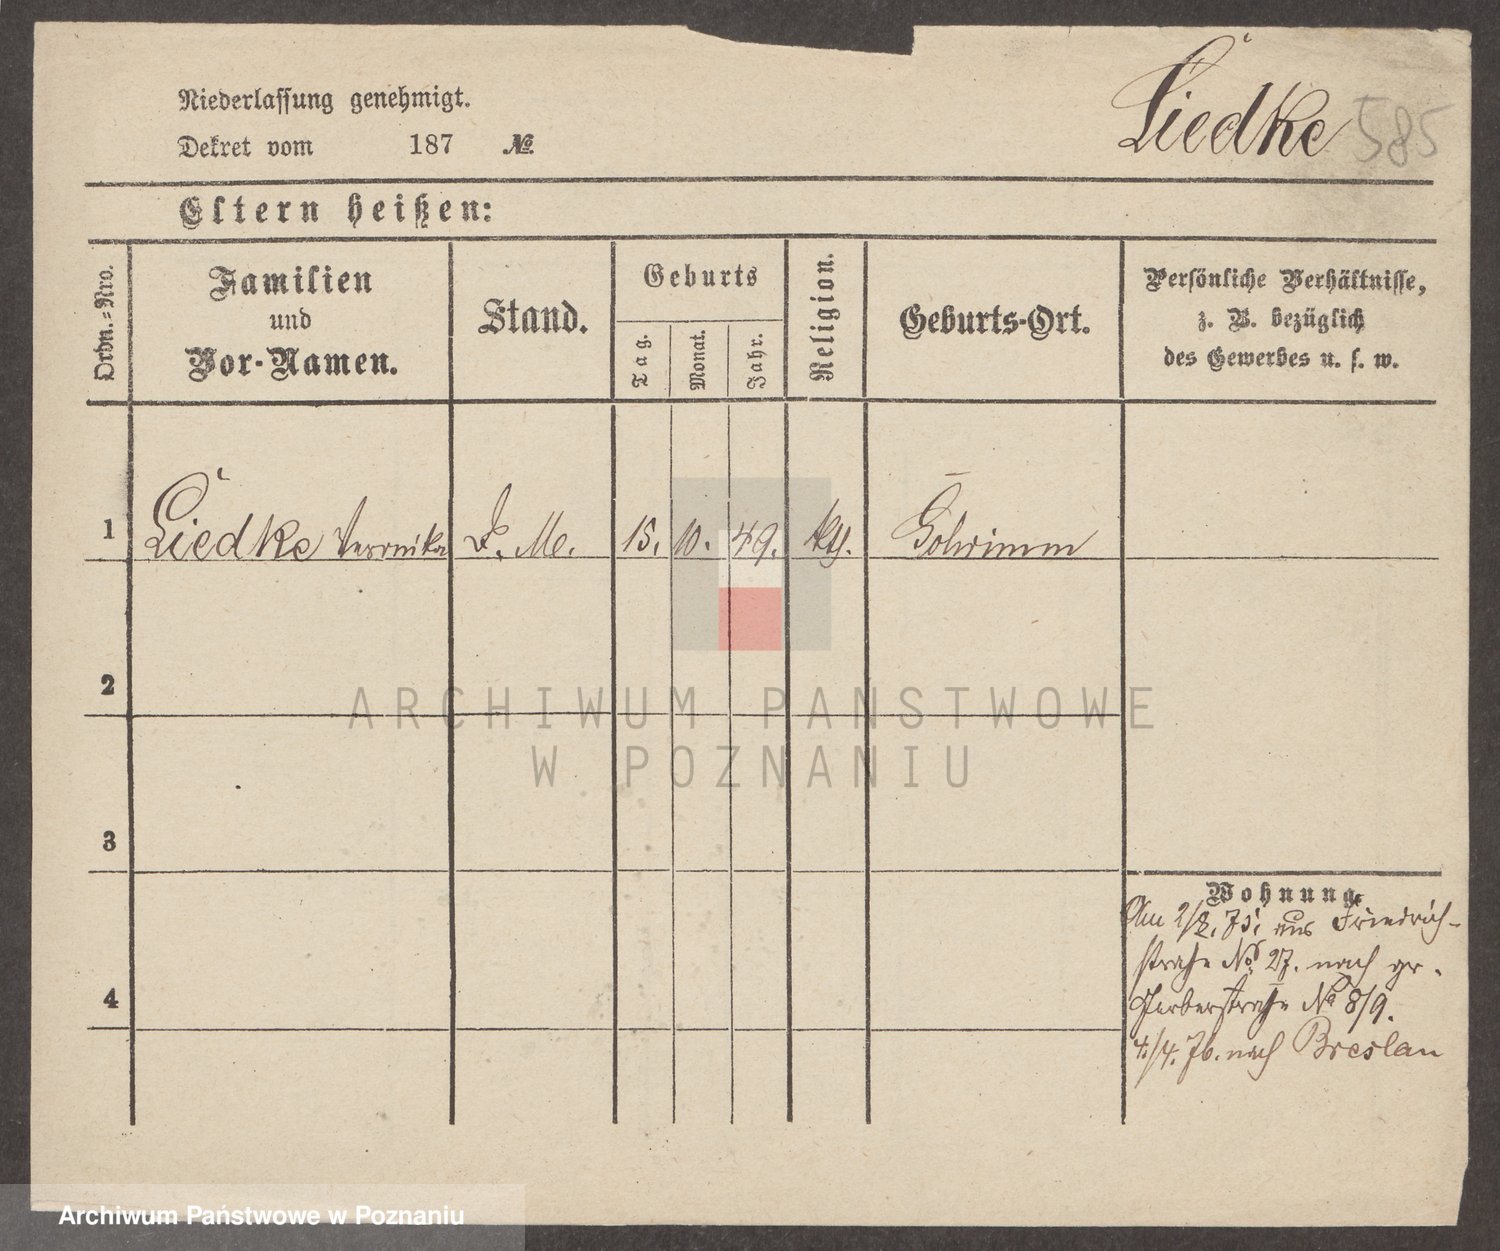 Niederlassung genehmigt.
Dekret vom 187 №
Liedke 585
Eltern heißen:
Ordn.-Nro.
Familien
und
Vor-Namen.
Stand.
Geburts
Tag.
Monat.
Jahr.
Religion.
Geburts-Ort.
Persönliche Verhältnisse,
z. B. bezüglich
des Gewerbes u. s. w.
1 Liedke Veronika D. M. 15. 10. 49. kth.
2
ARCHIWUM PAŃSTWOWE
W POZNANIU
3
Wohnung.
Am 2/8. 75. aus Friedrich-
straße No 27. nach gr.
4
Gerberstraße No 8/9.
4./4. 76. nach Breslau
Archiwum Państwowe w Poznaniu